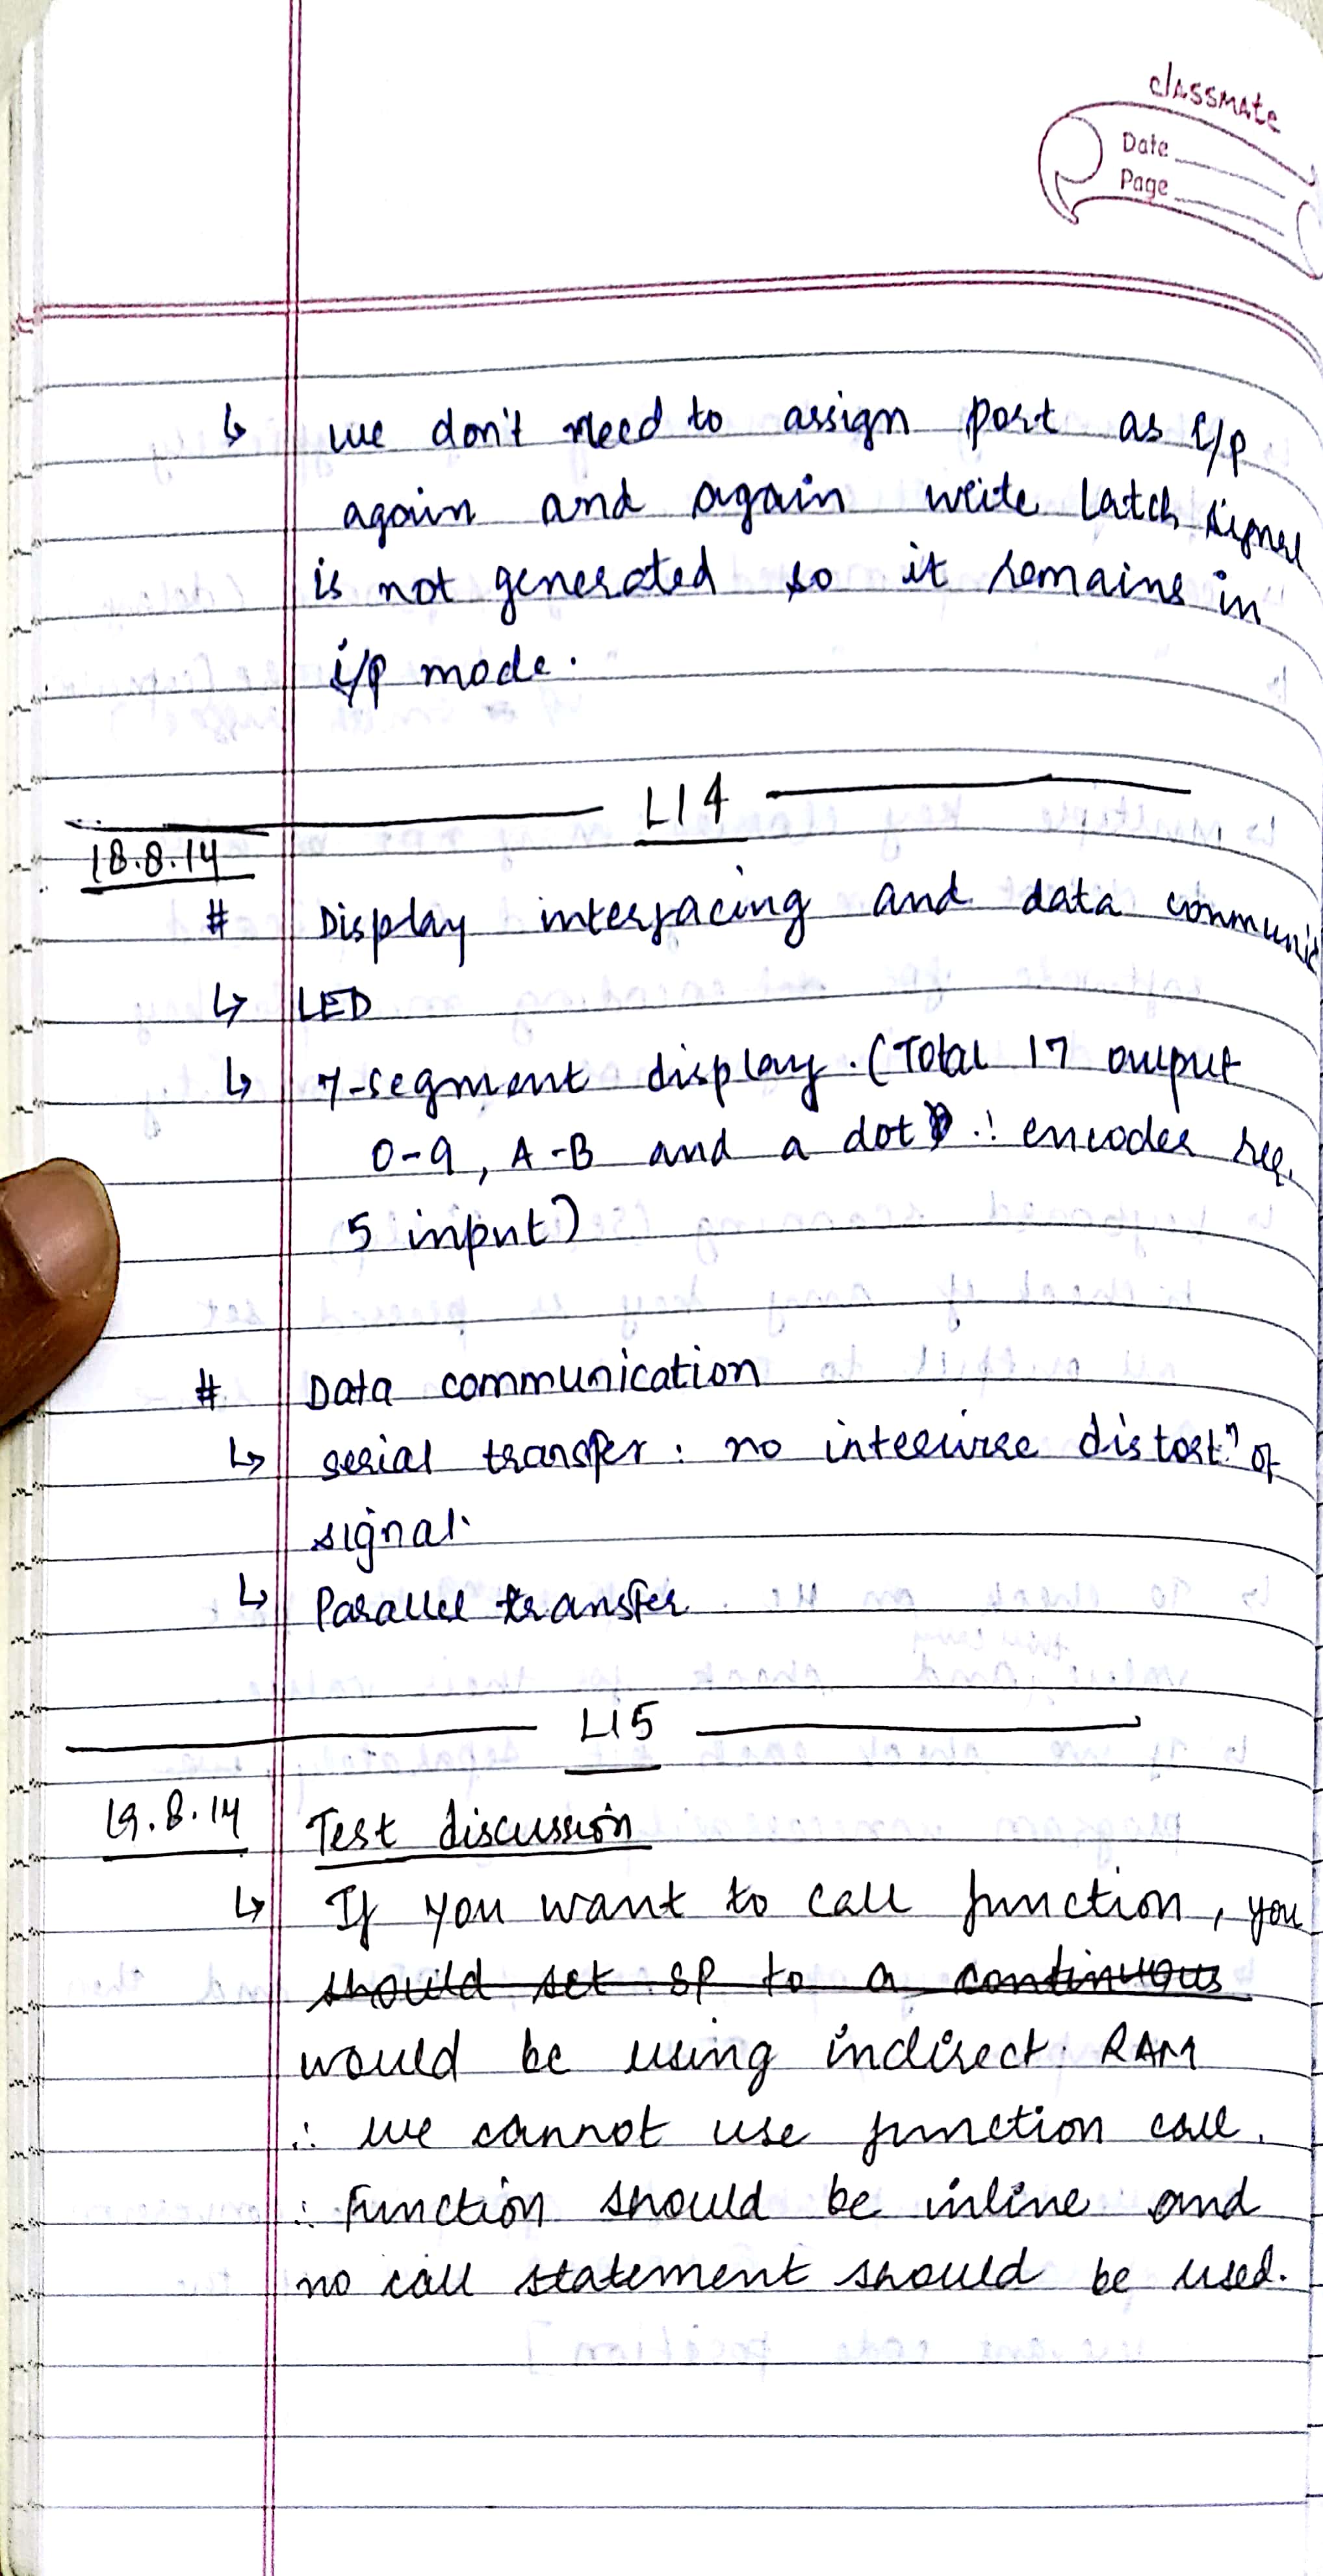 classmate
Date
Page
↳ we don't need to assign port as i/p
again and again write latch signal
is not generated so it remains in
i/p mode.
L14
18.8.14
# Display interfacing and data communic
↳ LED
↳ 7-segment display. (Total 17 output
0-9, A-B and a dot ∴ encoder req.
5 input)
# Data communication
↳ serial transfer: no interwire distortⁿ of
signal.
↳ Parallel transfer
L15
19.8.14 Test discussion
↳ If you want to call function, you
should set SP to a continuous
would be using indirect RAM
∴ we cannot use function call.
∴ Function should be inline and
no call statement should be used.